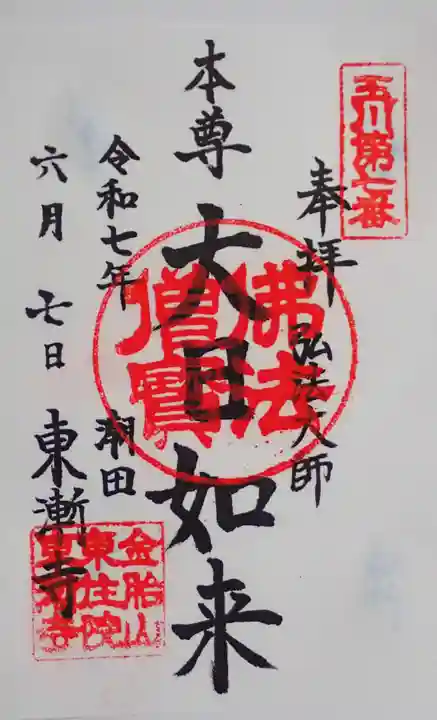 玉川第七番
奉拝 弘法大師
本尊 大日如来
佛法僧寳
令和七年 潮田
六月七日 東漸寺
金胎山
東住院
東漸寺